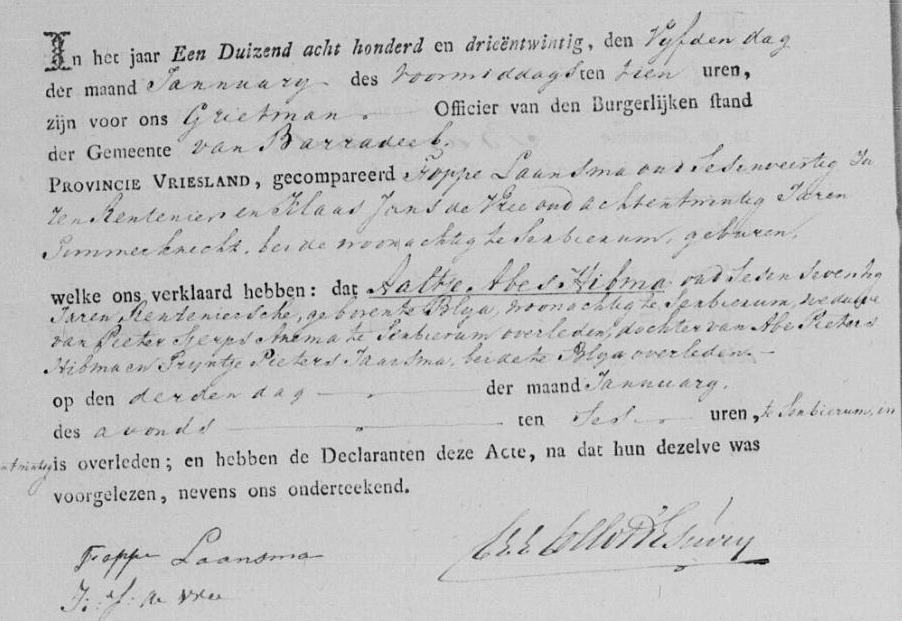 In het jaar Een Duizend acht honderd en drieëntwintig, den Vyfden dag
der maand Jannuary des voormiddags ten tien uren,
zijn voor ons Grietman Officier van den Burgerlijken stand
der Gemeente van Barradeel
PROVINCIE VRIESLAND, gecompareerd Foppe Laansma oud Sesenveertig Ja
ren Rentenier en Klaas Jans de Vree oud achtentwintig Jaren
Timmerknecht, beide woonachtig te Sexbierum, geburen,
welke ons verklaard hebben: dat Aaltje Abes Hibma oud Sesen Seventig
Jaren Renteniersche, geboren te Polya, woonachtig te Sexbierum, weduwe
van Pieter Sjerps Anema te Sexbierum overleden, dochter van Abe Pieters
Hibma en Tryntje Pieters, beide te Polya overleden
op den derden dag der maand Jannuary,
des avonds ten Ses uren, te Sexbierum, in
is overleden; en hebben de Declaranten deze Acte, na dat hun dezelve was
voorgelezen, nevens ons onderteekend.
Foppe Laansma
de Vree